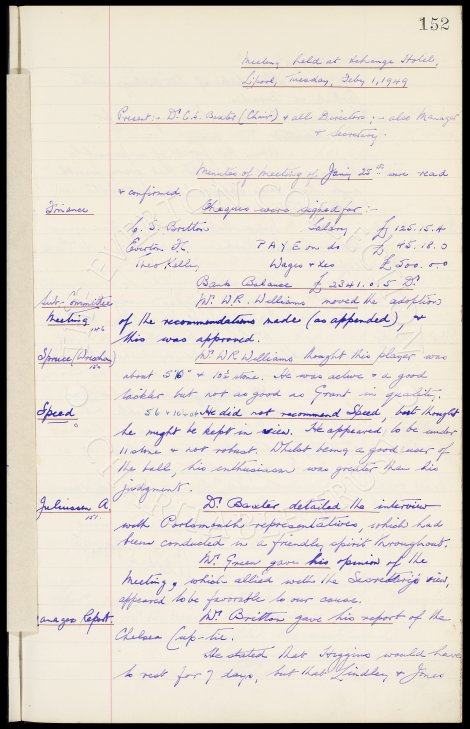 152
Meeting held at Exchange Hotel,
L'pool, Tuesday, Feby 1, 1949
Present:- Dr C.S. Baxter (Chair) & all Directors; - also Manager
& Secretary.
Minutes of meeting of Jany 25th were read
& confirmed.
Finance
Cheques were signed for:-
C. S. Britton Salary £125.15.4
Everton F.C. P A Y E on do £ 45.18.0
Theo Kelly Wages & Exs £500.0.0
Bank Balance £2341.0.5 Dr
Sub-Committee
Mr W.R. Williams moved the adoption
Meeting 146
of the recommendations made (as appended), &
this was approved.
Spruce (Wrexham)
Mr W.R. Williams thought this player was
about 5'8" & 10½ stone. He was active & a good
tackler but not as good as Grant in quality.
Speed
He did not recommend Speed, but thought
he might be kept in view. He appeared to be under
11 stone & not robust. Whilst being a good user of
the ball, his enthusiasm was greater than his
judgment.
Juliussen A.
151.
Dr Baxter detailed the interview
with Portsmouth's representatives, which had
been conducted in a friendly spirit throughout.
Mr. Green gave his opinion of the
Meeting, which allied with the Secretary's view,
appeared to be favorable to our cause.
anagers Report.
Mr. Britton gave his report of the
Chelsea Cup-tie.
He stated that Higgins would have
to rest for 7 days, but that Lindley & Jones